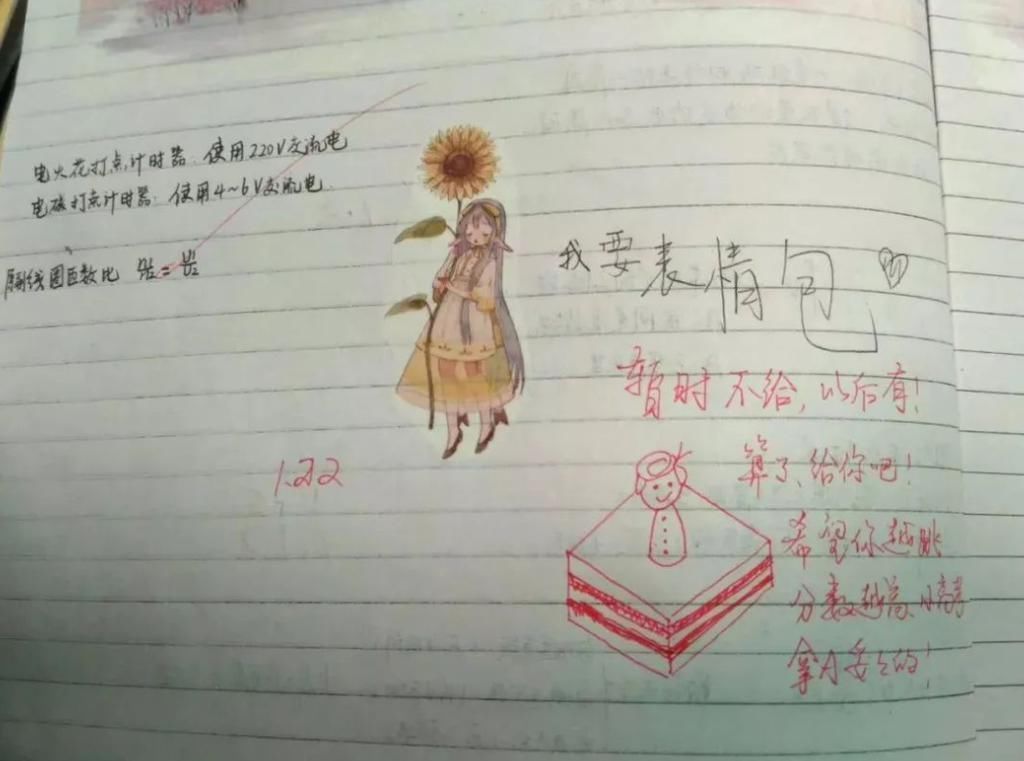 电火花打点计时器：使用220V交流电
电磁打点计时器：使用4~6V交流电
线圈匝数比
我要表情包
暂时不给，以后有！
1.22
算了、给你吧！
希望你越跳
分数越高、小高考
拿A妥妥的！